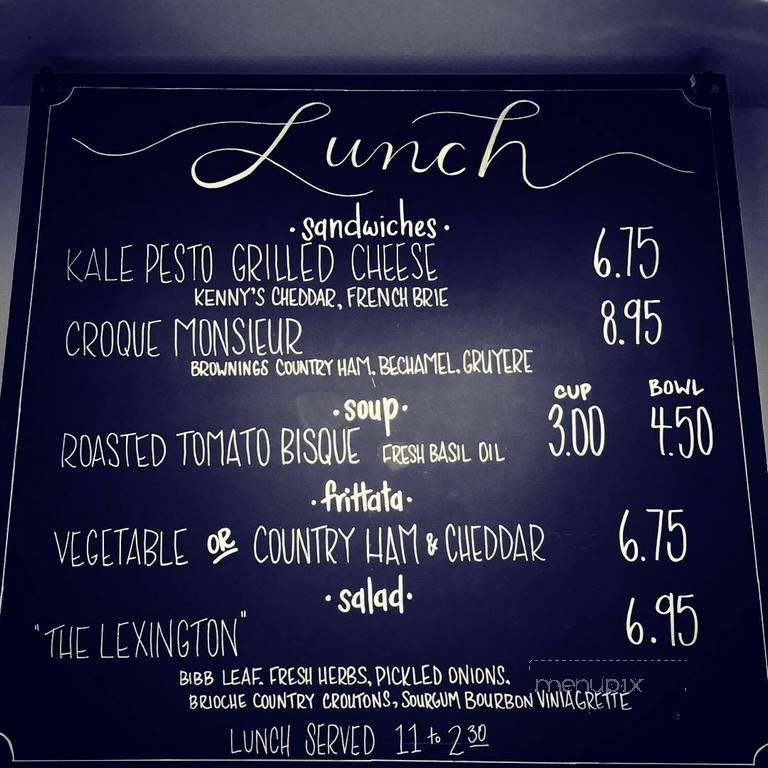 Lunch
·sandwiches·
KALE PESTO GRILLED CHEESE 6.75
KENNY'S CHEDDAR, FRENCH BRIE
CROQUE MONSIEUR 8.95
BROWNINGS COUNTRY HAM, BECHAMEL. GRUYERE
CUP BOWL
·soup·
ROASTED TOMATO BISQUE FRESH BASIL OIL 3.00 4.50
·frittata·
VEGETABLE OR COUNTRY HAM & CHEDDAR 6.75
·salad·
"THE LEXINGTON" 6.95
BIBB LEAF. FRESH HERBS, PICKLED ONIONS.
menupix
BRIOCHE COUNTRY CROUTONS, SOURGUM BOURBON VINIAGRETTE
LUNCH SERVED 11 to 2 30